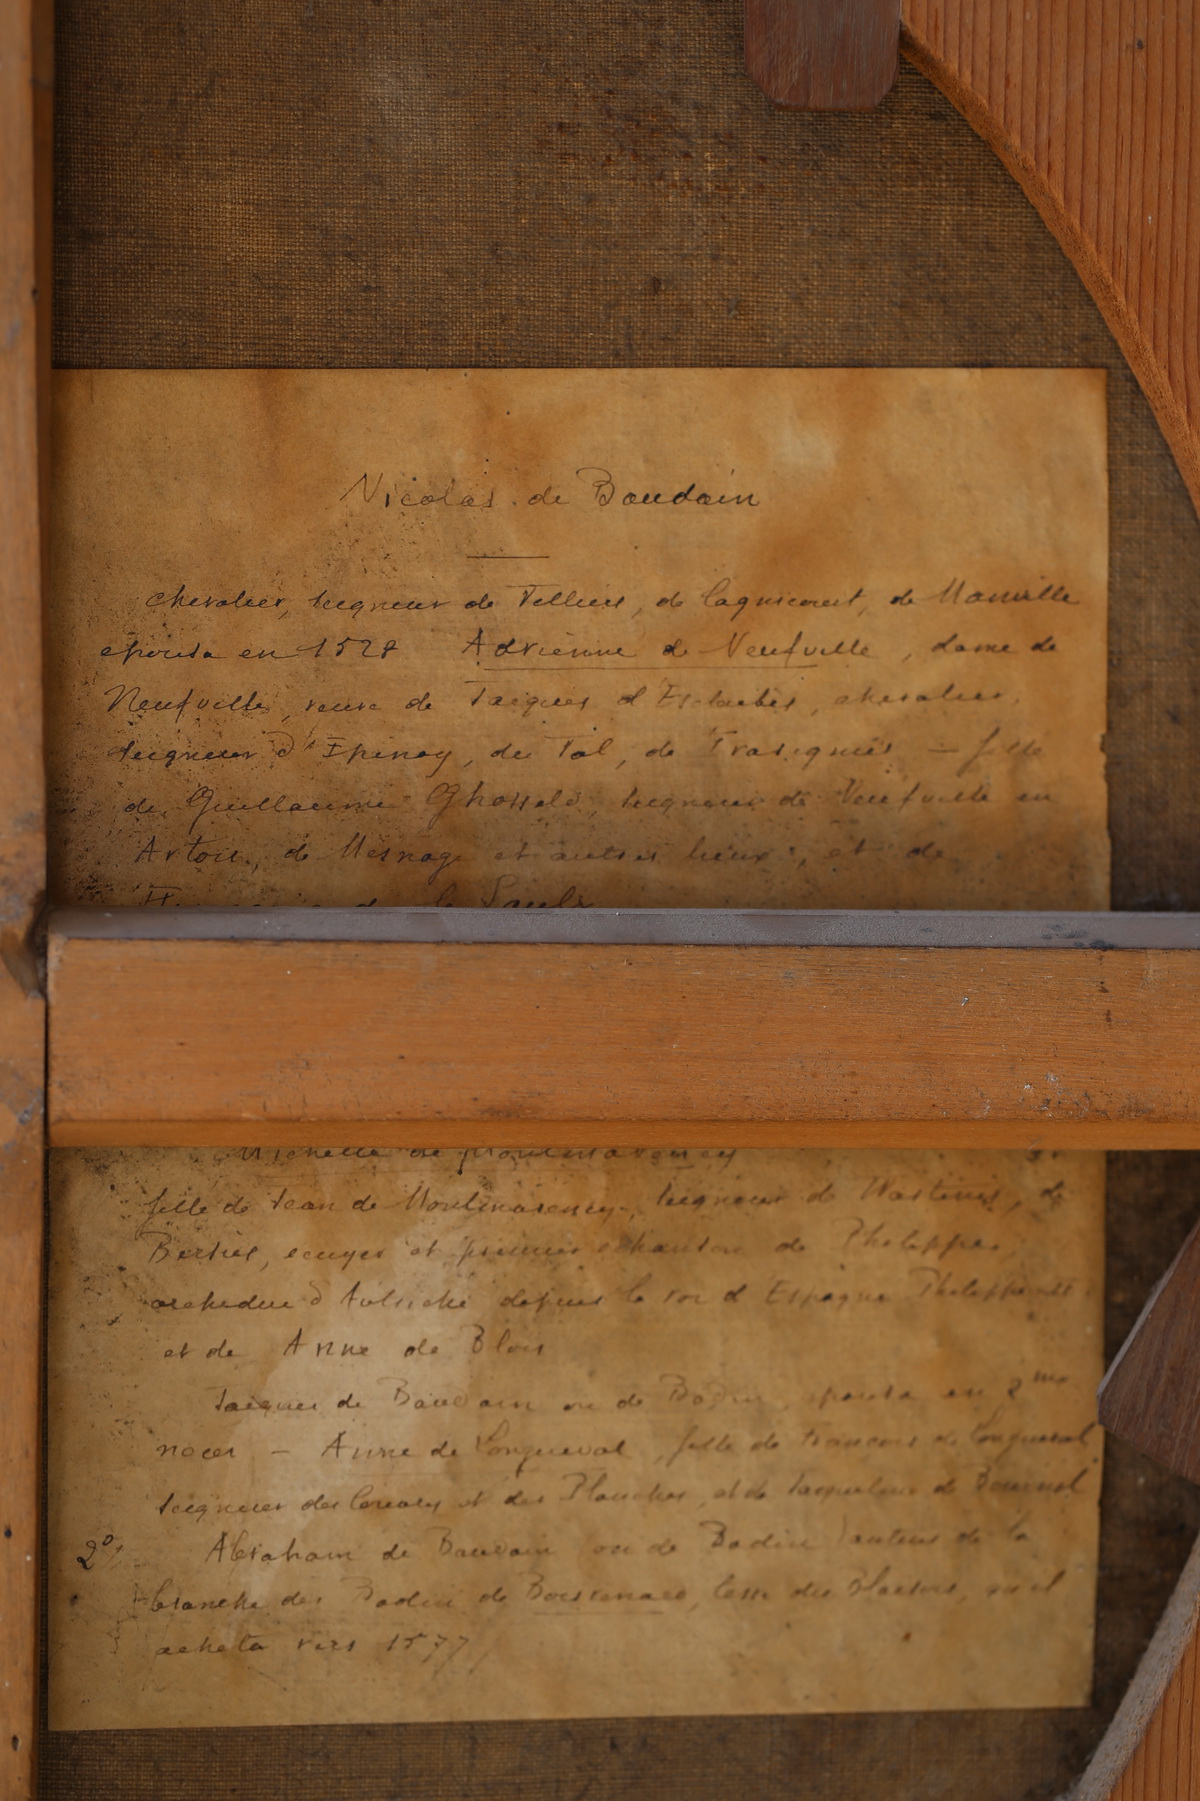 Nicolas de Baudain
chevalier, seigneur de Velliers, de Cagnicourt, de Manville
épousa en 1528 Adrienne de Neufville, dame de
Neufville, veuve de Jacques d'Esclaibes, chevalier,
seigneur d'Epinoy, du Tal, de Trasignies — fille
de Guillaume, seigneur de Neufville en
Artois, de Mesnage et autres lieux, et de
de la Saulx
Michelle de Montmorency
fille de Jean de Montmorency, seigneur de Wastines, de
Bersées, écuyer et premier échanson de Philippe,
archiduc d'Autriche depuis le roi d'Espagne
et de Anne de Blois
Jacques de Baudain ou de Bodin, épousa en 2me
noces — Anne de Longueval, fille de François de Longueval,
seigneur des et des Planches, et de Jacqueline de
2° Abraham de Baudain ou de Bodin auteur de la
branche des Bodin de Boisrenard, terre du Blaisois, qu'il
acheta vers 1577